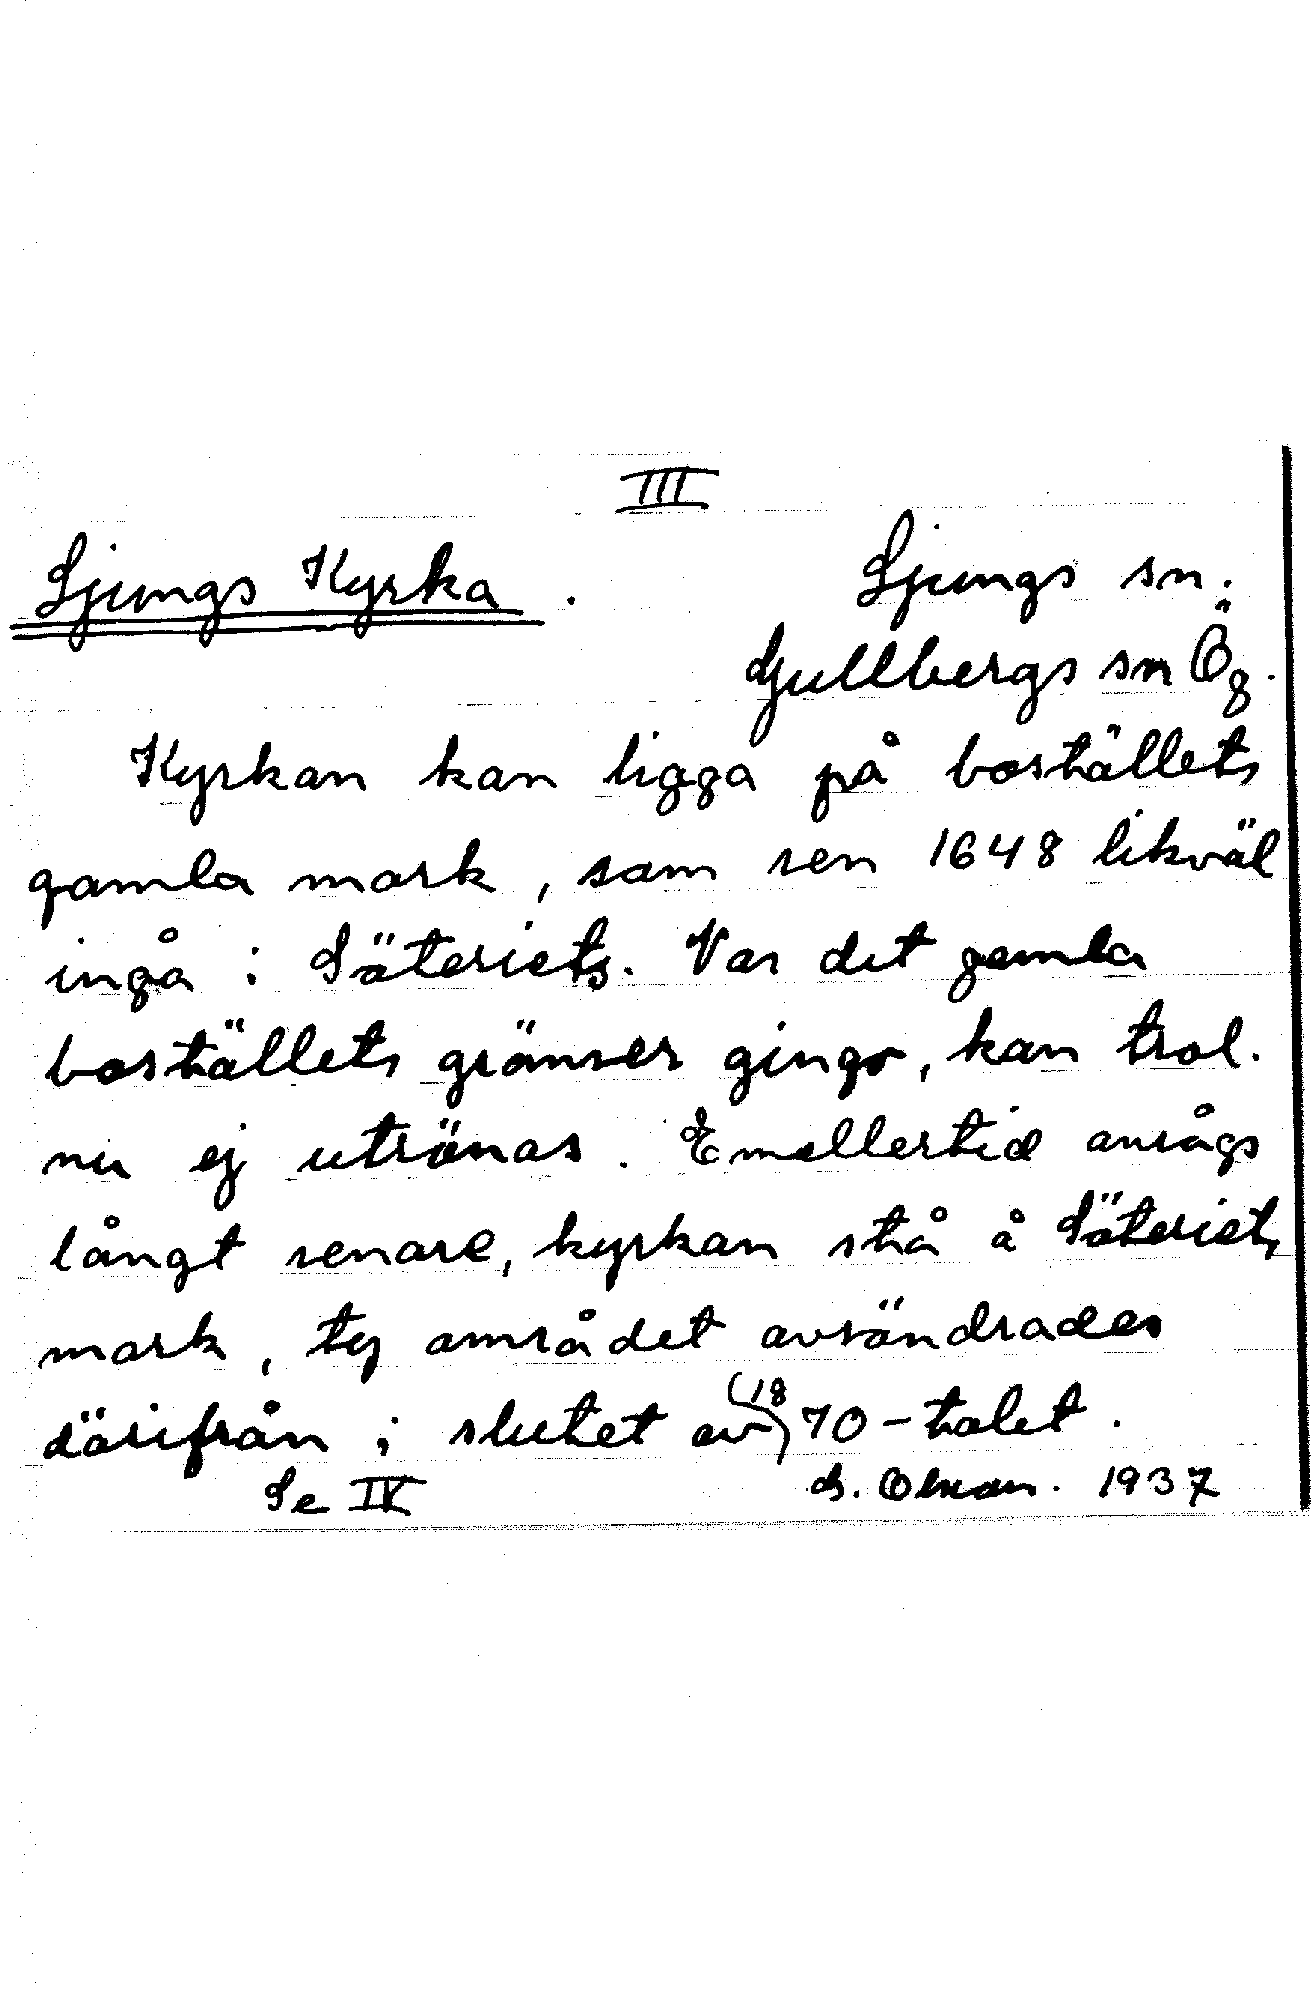 III
Ljungs Kyrka. Ljungs sn.
Gullbergs sn Ög.
Kyrkan kan ligga på boställets
gamla mark, som sen 1648 likväl
ingå i Säteriets. Var det gamla
boställets gränser gingo, kan trol.
nu ej utrönas. Emellertid ansågs
långt senare, kyrkan stå å Säteriets
mark, ty området avsöndrades
därifrån i slutet av (18) 70-talet.
Se IV 1937